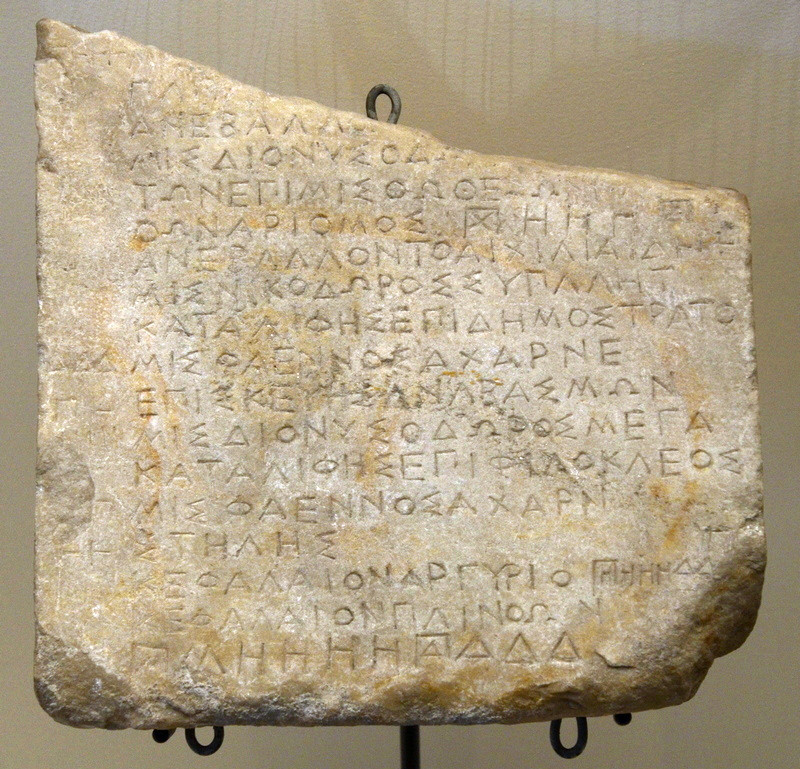 ΑΝΕΒΑΛΩ
ΜΙΣΔΙΟΝΥΣΟΔ
ΤΩΝΕΠΙΜΙΣΘΩΘΕ
ΘΩΝΑΡΙΘΜΟΣ 𐅆ΗΗ
ΑΝΕΒΑΛΛΟΝΤΟΑΙΧΙΛΙΑΙΔ
ΜΙΣΝΙΚΟΔΩΡΟΣΣΥΠΑΛΛΗΤ
ΚΑΤΑΛΙΦΗΣΕΠΙΔΗΜΟΣΤΡΑΤΟ
ΔΔΔ ΜΙΣΦΑΕΝΝΟΣΑΧΑΡΝΕ
ΕΠΙΣΚΕΥΗΣΑΝΑΒΑΣΜΩΝ
ΜΙΣΔΙΟΝΥΣΟΔΩΡΟΣΜΕΓΑ
ΚΑΤΑΛΙΦΗΣΕΠΙΦΙΛΟΚΛΕΟΣ
ΜΙΣΦΑΕΝΝΟΣΑΧΑΡΝ
ΣΤΗΛΗΣ
ΚΕΦΑΛΑΙΟΝΑΡΓΥΡΙΟ 𐅅ΗΗΗΔΔ
ΚΕΦΑΛΑΙΟΝΠΛΙΝΘΩΝ
ΜΗΗΗΗ𐅄ΔΔΔ